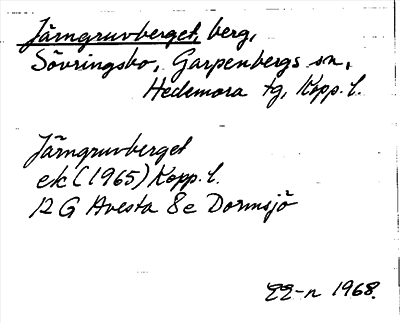 Järngruvberget, berg,
Sövringsbo, Garpenbergs sn,
Hedemora tg, Kopp. l.
Järngruvberget
ek (1965) Kopp. l.
12 G Avesta 8e Dormsjö
1968.